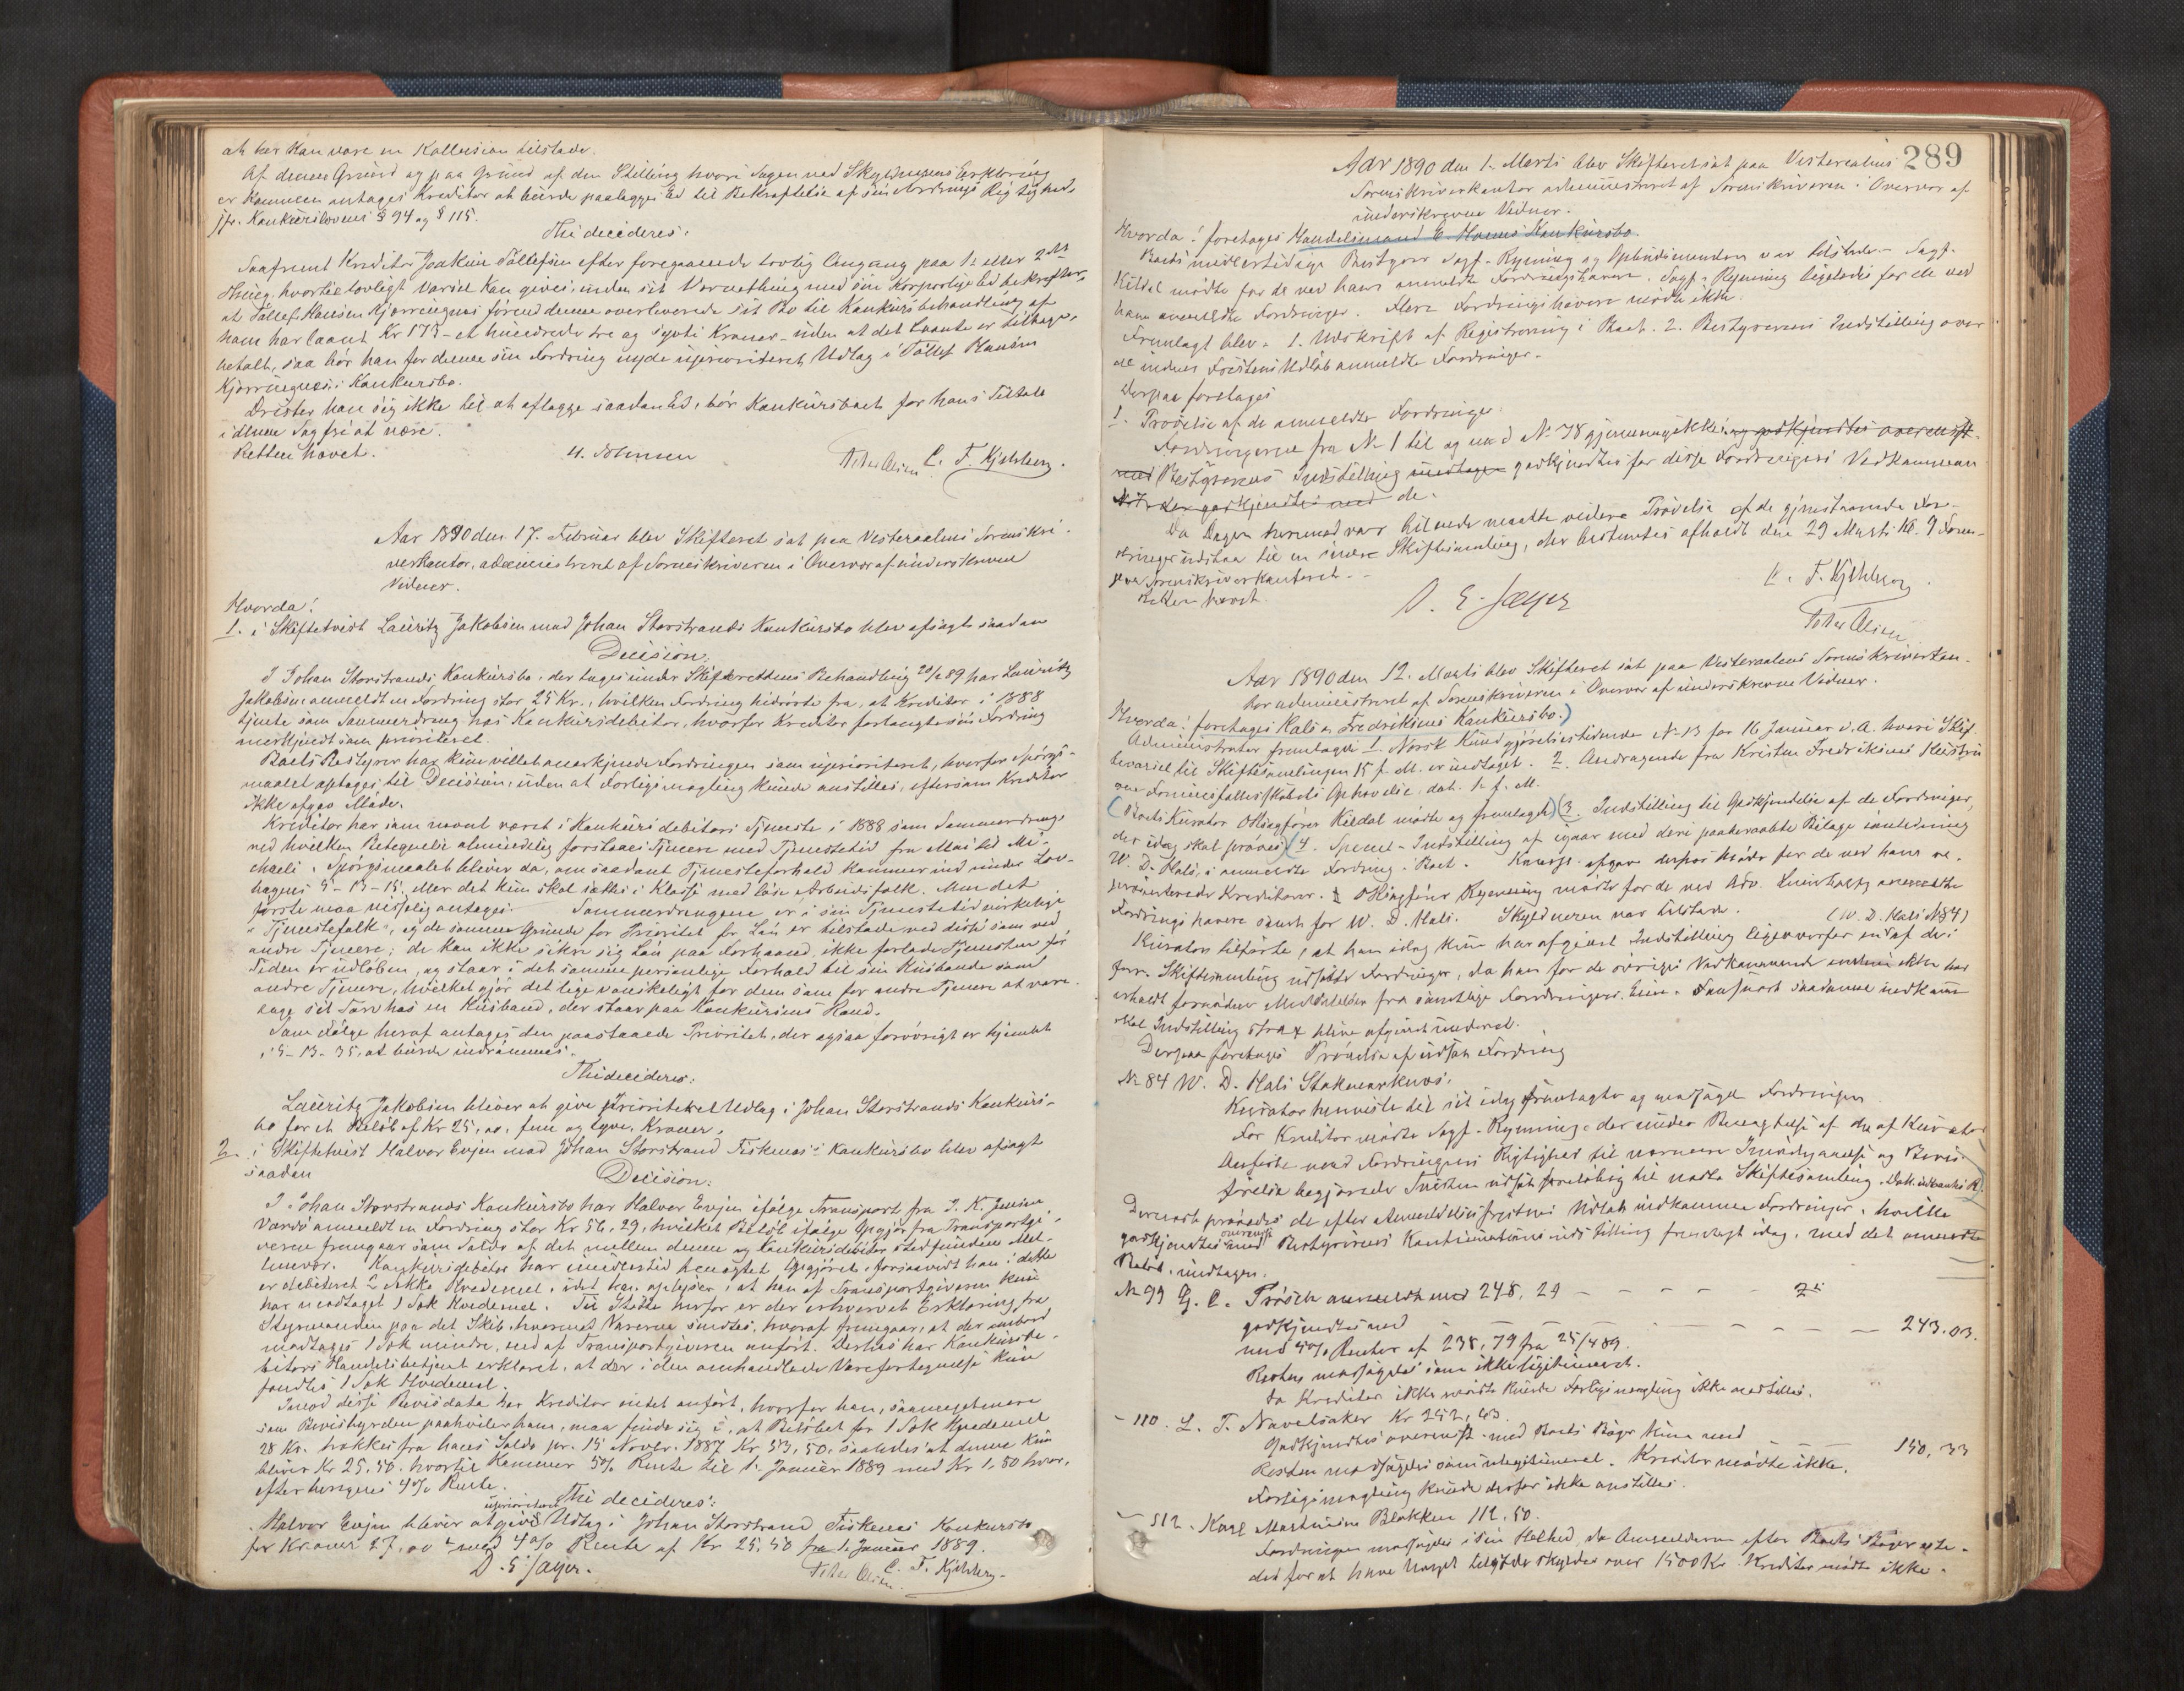 at her kan være en Kollusion tilstede.
Af denne Grund og paa Grund af den Stilling hvori Sagen ved Skyldnerens Erklæring
er kommen antages Kreditor at burde paalægges Ed til Bekræftelse af sin Fordrings Rigtighed,
jfr. Konkurslovens § 94 og § 115.
Thi decideres:
Saafremt Kreditor Joakim Tollefsen efter foregaaende lovlig Omgang paa 1ste eller 2det
Thing, hvortil lovligt Varsel kan gives, inden sit Værnething med sin korporlige Ed bekræfter,
at Tollef Hansen Kjørringnes førend denne overleverede sit Bo til Konkursbehandling af
ham har laant Kr 173 - et hundrede tre og sytti Kroner - uden at det Laante er tilbage-
betalt, saa bør han for denne sin Fordring nyde uprioriteret Udlag i Tollef Hansen
Kjørringnes's Konkursbo.
Drister han sig ikke til at aflægge saadan Ed, bør Konkursboet for hans Tiltale
i denne Sag fri at være.
Retten hævet.
H. Johnsen
Peter Olsen C. F. Kjelsberg.
Aar 1890 den 17. Februar blev Skifteret sat paa Vesteraalens Sorenskri-
verkontor, administreret af Sorenskriveren i Overvær af underskrevne
Vidner.
Hvorda:
1. i Skiftetvist Lauritz Jakobsen mod Johan Storstrands Konkursbo blev afsagt saadan
Decision:
I Johan Storstrands Konkursbo, der toges under Skifterettens Behandling 89 har Lauritz
Jakobsen anmeldt en Fordring stor 25 Kr., hvilken Fordring hidrørte fra, at Kreditor i 1888
tjente som Sommerdreng hos Konkursdebitor, hvorfor Kreditor forlangte sin Fordring
anerkjendt som prioriteret.
Boets Bestyrer har kun villet anerkjende Fordringen som uprioriteret, hvorfor Spørgs-
maalet optages til Decision, uden at Forligsmægling kunde anstilles, eftersom Kreditor
ikke afgav Møde.
Kreditor har som nævnt været i Konkursdebitors Tjeneste i 1888 som Sommerdreng,
ved hvilken Betegnelse almindelig forstaaes Tjener med Tjenestetid fra Mai til Mi-
chaeli. Spørgsmaalet bliver da, om saadant Tjenesteforhold kommer ind under Lov-
bogens 5-13-15, eller det kun skal sættes i Klasse med løse Arbeidsfolk. Men det
første maa visselig antages. Sommerdrengene er i sin Tjenestetid virkelige
"Tjenestefolk", og de samme Grunde for Prioritet for Løn er tilstede ved disse som ved
andre Tjenere; de kan ikke sikre sig Løn paa Forhaand, ikke forlade Tjenesten før
Tiden er udløben, og staar i det samme personlige Forhold til sin Husbonde som
andre Tjenere, hvilket gjør det lige vanskeligt for dem som for andre Tjenere at vare-
tage sit Tarv hos en Husbond, der staar paa Konkursens Rand.
Som Følge heraf antages den paastaaede Prioritet, der ogsaa forøvrigt er hjemlet
i 5-13-35, at burde indrømmes.
Thi decideres:
Lauritz Jakobsen bliver at give prioriteret Udlag i Johan Storstrands Konkurs-
bo for et Beløb af Kr 25,00, fem og tyve Kroner.
2. i Skiftetvist Halvor Evjen mod Johan Storstrand Fiskenes's Konkursbo blev afsagt
saadan
Decision:
I Johan Storstrands Konkursbo har Halvor Evjen ifølge Transport fra J. K. Jensen
Vardø anmeldt en Fordring stor Kr 54,29, hvilket Beløb ifølge Opgjør fra Transportgi-
veren fremgaar som Saldo af det mellem denne og Konkursdebitor stedfundene Mel-
lemvær. Konkursdebitor har imidlertid benægtet Opgjøret, forsaavidt han i dette
er debiteret 2 Sække Hvedemel, idet han oplyser, at han af Transportgiveren kun
har modtaget 1 Sæk Hvedemel. Til Støtte herfor er der erhvervet Erklæring fra
Styrmanden paa det Skib, hvormed Varerne sendtes, hvoraf fremgaar, at der ombord
modtages 1 Sæk mindre, end af Transportgiveren anført. Desuden har Konkursde-
bitors Handelsbetjent erklæret, at der i den omhandlede Varefortegnelse kun
fandtes 1 Sæk Hvedemel.
Imod disse Bevisdata har Kreditor intet anført, hvorfor han, saameget mere
som Bevisbyrden paahviler ham, maa finde sig i, at Beløbet for 1 Sæk Hvedemel
28 Kr. trækkes fra hans Saldo pr. 15 Novbr. 1887 Kr 53,50, saaledes at denne kun
bliver Kr 25,50, hvortil kommer 5% Rente til 1. Januar 1889 med Kr 1,50 hvor-
efter beregnes 4% Rente.
Thi decideres:
Halvor Evjen bliver at give uprioriteret Udlag i Johan Storstrand Fiskenes Konkursbo
for Kroner 27,00 med 4% Rente af Kr 25,50 fra 1. Januar 1889.
D. E. Jæger.
Peter Olsen. C. F. Kjelsberg.
289
Aar 1890 den 1. Marts blev Skifteret sat paa Vesteraalens
Sorenskriverkontor administreret af Sorenskriveren i Overvær af
underskrevne Vidner.
Hvorda: foretoges Handelsmand E. Konkursbo.
Boets midlertidige Bestyrer Sagf. Rynning og Opbudsmanden var tilstede. Sagf.
Kildal mødte for de ved ham anmeldte Fordringshavere. Sagf. Rynning ligeledes for de ved
ham anmeldte Fordringer. Flere Fordringshavere mødte ikke.
Fremlagt blev: 1. Udskrift af Registrering i Boet. 2. Bestyrerens Indstilling over
de inden Fristens Udløb anmeldte Fordringer.
Derpaa foretoges
1. Prøvelse af de anmeldte Fordringer.
Fordringerne fra No 1 til og med No 38 gjennemgikkes og godkjendtes overensst.
med Bestyrerens Indstilling godkjendtes for disse Fordringers Vedkommen
de.
Da Dagen hermed var tilende maatte videre Prøvelse af de gjenstaaende For-
dringer udstaa til en senere Skiftesamling, der bestemtes afholdt den 29 Marts Kl. 9 Form.
paa Sorenskriverkontoret.
Retten hævet.
D. E. Jæger
C. F. Kjelsberg.
Peter Olsen
Aar 1890 den 12. Marts blev Skifteret sat paa Vesteraalens Sorenskriverkon-
tor administreret af Sorenskriveren i Overvær af underskrevne Vidner.
Hvorda: foretoges Hals Fredriksens Konkursbo.
Administrator fremlagde 1. Norsk Kundgjørelsestidende No 13 for 16 Januar d. A. hvori Skif-
tevarsel til Skiftesamlingen 15 f. M. er indtaget. 2. Andragende fra Kristen Fredriksens Hustru
om Formuesfællesskabets Ophævelse, dat. 1 f. M.
Boets Kurator OSagfører Kildal mødte og fremlagde 3. Indstilling til Godkjendelse af de Fordringer,
der idag skal prøves 4. Speciel Indstilling af igaar med deri paaberaabte Bilage i anledning
W. D. Hals's anmeldte Fordring i Boet. Kurator afgav derhos Møde for de ved ham re-
præsenterede Kreditorer. OSagfører Rynning mødte for de ved Adv. anmeldte
Fordringshavere samt for W. D. Hals. Skyldneren var tilstede.
Kurator tilførte, at han idag kun har afgivet Indstilling ligeoverfor en af de i (W. D. Hals No 84)
forr. Skiftesamling udsatte Fordringer, da han for de øvriges Vedkommende ikke har
erholdt fornødne Meddelelser fra samtlige Fordringers Eiere. Saasnart saadanne indkomme
skal Indstilling strax blive afgivet.
Derpaa foretoges Prøvelse af udsat Fordring
No 84 W. D. Hals Stokmarknes.
Kurator henviste til sit idag fremlagte og modsagde Fordringen.
For Kreditor mødte Sagf. Rynning, der under Benægtelse af de af Kurator
Anførte mod Fordringens Rigtighed til nærmere Imødegaaelse og Bevis-
førelse begjærede Tvisten udsat foreløbig til næste Skiftesamling.
Dernæst prøvedes de efter Anmeldelsesfristens Udløb indkomne Fordringer, hvilke
godkjendtes overensst. med Bestyrerens Indstilling fremlagt idag, med det anmeldte
Beløb, undtagen.
No 99 G. C. Trosch anmeldt med 248,29
godkjendtes med 243.03.
med 4% Renter af 238,79 fra 25/4 89.
Resten modsagdes som ikke legitimeret.
Da Kreditor ikke mødte kunde Forligsmægling ikke anstilles.
- 110. L. T. Navelsaker Kr 252,43.
Godkjendtes overensst. med Boets Bøger kun med 150,33
Resten modsagdes som ulegitimeret. Kreditor mødte ikke.
Forligsmægling kunde derfor ikke anstilles.
- 112. Karl Martinsen Blokken 112.50.
Fordringen modsagdes i sin Helhed, da Anmelderen efter Boets Bøger iste-
det for at have Noget tilgode skylder over 1500 Kr. Kreditor mødte ikke.